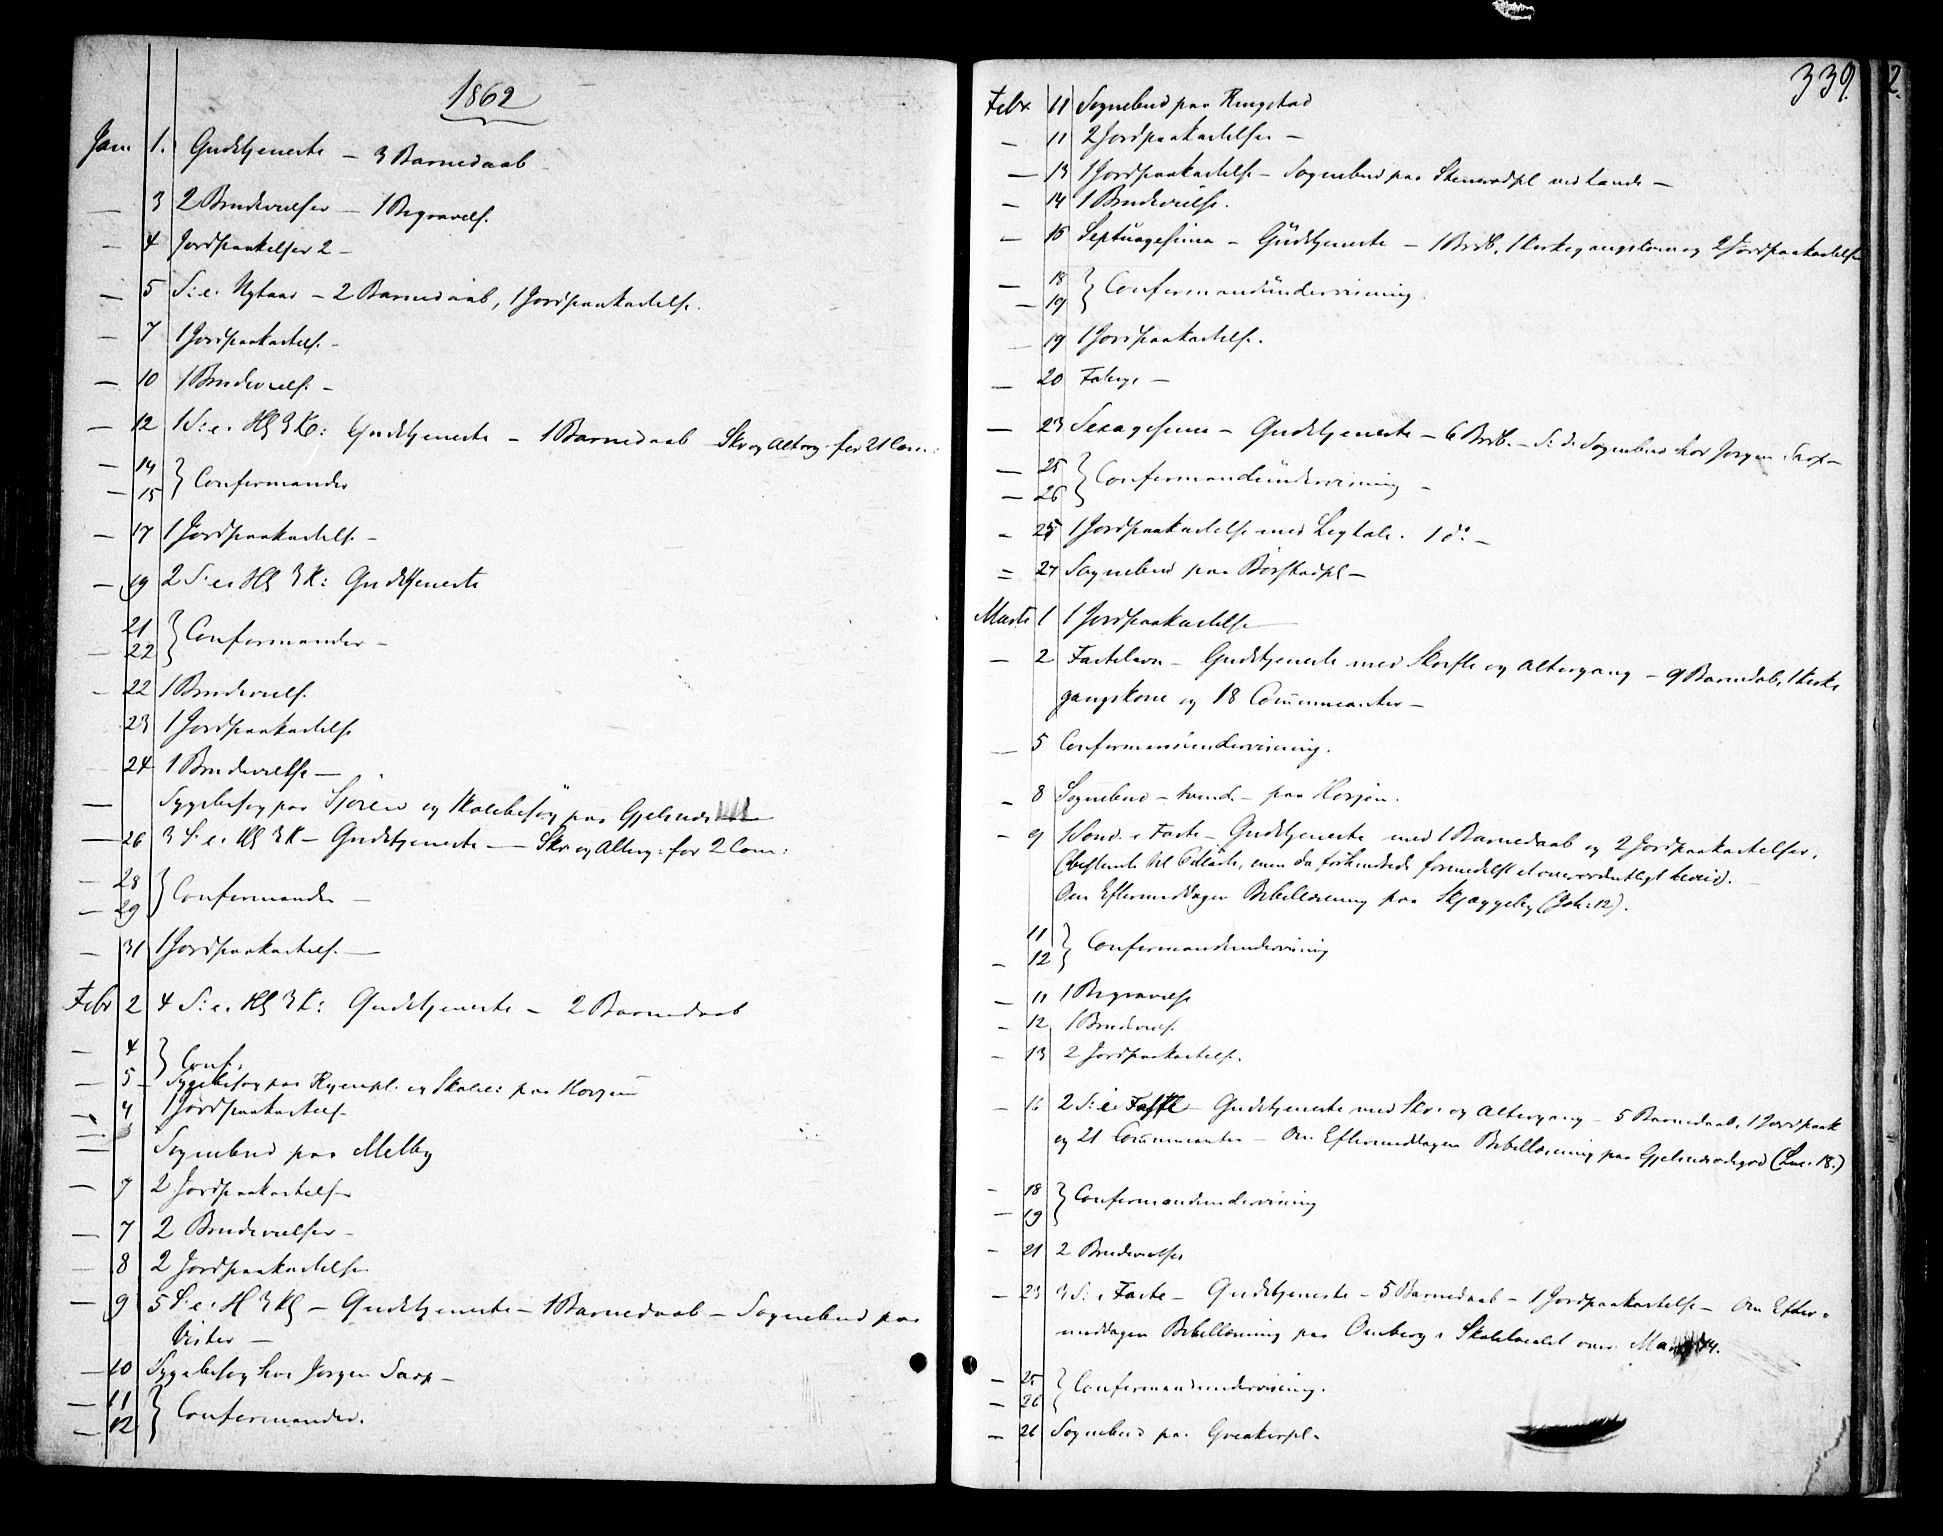 1862
Jan. 1. Gudstjeneste – 3 Barnedaab
— 3 2 Brudevielser – 1 Begravelse.
— 4 Jordpaakelser 2 –
— 5 S: e. Nytaar – 2 Barnedaab, 1 Jordpaakastelse.
— 7 1 Jordpaakastelse. –
— 10 1 Brudevielse. –
— 12 1 S: e. Hl 3 K: Gudstjeneste – 1 Barnedaab Skr og Alterg. for 21 Com.:
— 14
— 15 } Confirmander
— 17 1 Jordpaakastelse –
— 19 2 S: e. Hl 3 K: Gudstjeneste
21
— 22 } Confirmander –
— 22 1 Brudevielse.
23 1 Jordpaakastelse
24 1 Brudevielse —
— Sygebesøg paa og Skolebesøg paa
— 26 3 S. e. Hl 3 K – Gudstjeneste — Skr og Alterg: for 2 Com:
— 28
— 29 } Confirmander –
— 31 1 Jordpaakastelse. —
Febr 2 4 S: e. Hl 3 K: Gudstjeneste – 2 Barnedaab
— 4
— 5 } Conf.
Sygebesøg paa og Skole: paa Horgen
— 1 Jordpaakastelse
Sognebud paa Melby
— 7 2 Jordpaakastelser
— 7 2 Brudevielser –
— 8 2 Jordpaakastelse
— 9 5 S. e. H 3 K – Gudstjeneste – 1 Barnedaab – Sognebud paa
Vister —
— 10 Sygebesøg hos Jørgen Sarp –
— 11
— 12 } Confirmander.
339.
2.
Febr 11 Sognebud paa Ringstad
— 11 2 Jordpaakastelser –
— 13 1 Jordpaakastelse – Sognebud paa ved Lande –
— 14 1 Brudevielse.
— 16 Septuagesima – Gudstjeneste – 1 Brdb, 1 Kirkegangskone og 2 Jordpaakastelse
— 18
— 19 } Confirmandundervisning
— 19 1 Jordpaakastelse.
— 20 —
— 23 Sexagesima – Gudstjeneste – 6 Brdb. – S: d. Sognebud hos Jørgen Sarp –
— 25
— 26 } Confirmandundervisning –
— 25 1 Jordpaakastelse med Ligtale. 1 do –
= 27 Sognebud paa Børstadpl –
Marts 1 1 Jordpaakastelse
— 2 Fastelavn – Gudstjeneste med Skrifte og Altergang – 9 Barnedab, 1 Kirke
gangskone og 18 Communicanter –
— 5 Confirmandundervisning.
— 8 Sognebud – – paa Horgen.
— 9 1 Sønd. i Faste – Gudstjeneste med 1 Barnedaab og 2 Jordpaakastelser.
(bestemt til men da forhindret formedelst et overordentligt
Om Eftermiddagen Bibellæsning paa Skjøggeby (Joh: 12).
11
— 12 } Confirmandundervisning
— 11 1 Begravelse
— 12 1 Brudevielse.
— 13 2 Jordpaakastelse.
— 16 2 S: i Faste – Gudstjeneste med Skr: og Altergang – 5 Barnedaab, 1 Jordpaak
og 21 Communicanter – Om Eftermiddagen Bibellæsning paa (Luc. 18.)
— 18
— 19 } Confirmandundervisning
— 21 2 Brudevielser
— 23 3 S: i Faste – Gudstjeneste – 5 Barnedaab – 1 Jordpaakastelse – Om Efter-
middagen Bibellæsning paa Omberg i Skolelocalet over
— 25
— 26 } Confirmandundervisning.
— 26 Sognebud paa Greakerpl –